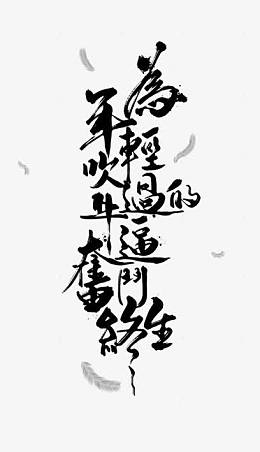 為年輕吹過的牛逼奮鬥終生